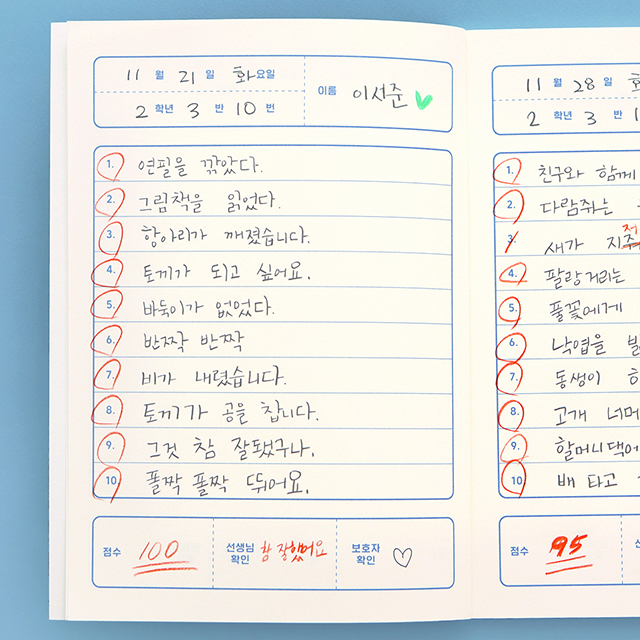 11 월 21 일 화요일
2 학년 3 반 10 번
이름 이서준
1. 연필을 깎았다.
2. 그림책을 읽었다.
3. 항아리가 깨졌습니다.
4. 토끼가 되고 싶어요.
5. 바둑이가 없었다.
6. 반짝 반짝
7. 비가 내렸습니다.
8. 토끼가 공을 찹니다.
9. 그것 참 잘됐구나.
10 폴짝 폴짝 뛰어요.
점수 100
선생님 확인 참 잘했어요
보호자 확인
11 월 28 일
2 학년 3 반
1. 친구와 함께
2. 다람쥐는
3. 새가
4. 팔랑거리는
5. 풀꽃에게
6. 낙엽을
7. 동생이
8. 고개 너머
9. 할머니댁에
10 배 타고
점수 95